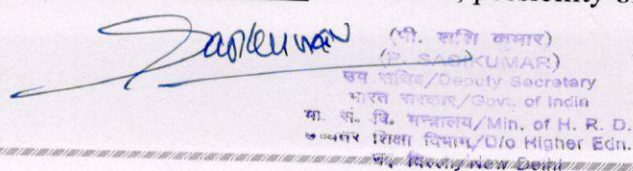 Sasikumar
(पी. शशि कुमार)
(P. SASIKUMAR)
उप सचिव/Deputy Secretary
भारत सरकार/Govt. of India
मा. सं. वि. मन्त्रालय/Min. of H. R. D.
उच्चतर शिक्षा विभाग/D/o Higher Edn.
नई दिल्ली/New Delhi